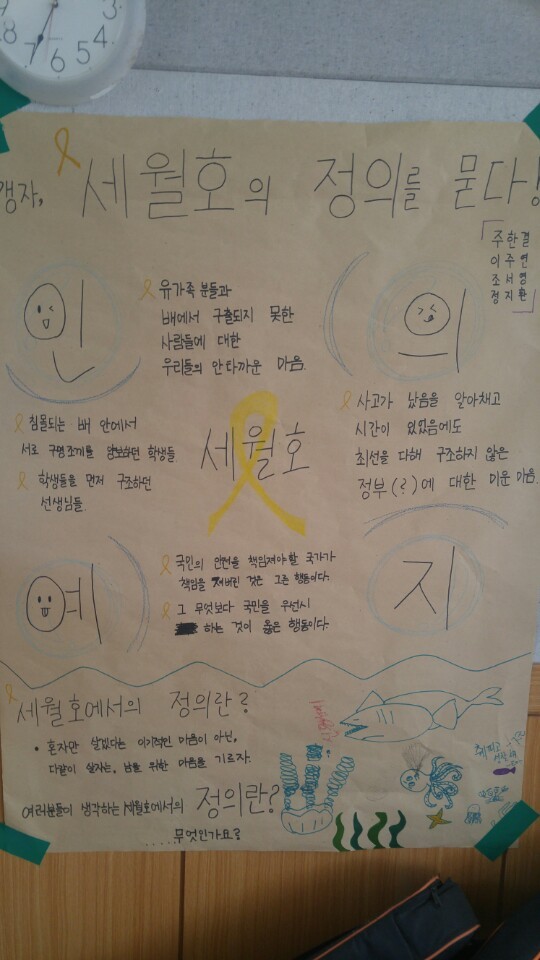 맹자, 세월호의 정의를 묻다!
주한결
이주연
조서영
정지환
인
유가족 분들과
배에서 구출되지 못한
사람들에 대한
우리들의 안타까운 마음.
의
침몰되는 배 안에서
서로 구명조끼를 양보하던 학생들.
학생들을 먼저 구조하던
선생님들.
세월호
사고가 났음을 알아채고
시간이 있었음에도
최선을 다해 구조하지 않은
정부(?)에 대한 미운 마음.
예
국민의 안전을 책임져야할 국가가
책임을 져버린 것은 그른 행동이다.
그 무엇보다 국민을 우선시
하는 것이 옳은 행동이다.
지
세월호에서의 정의란?
• 혼자만 살겠다는 이기적인 마음이 아닌,
다같이 살자는, 남을 위한 마음을 기르자.
여러분들이 생각하는 세월호에서의 정의란?
.....무엇인가요?
8 7 6 5 4 3